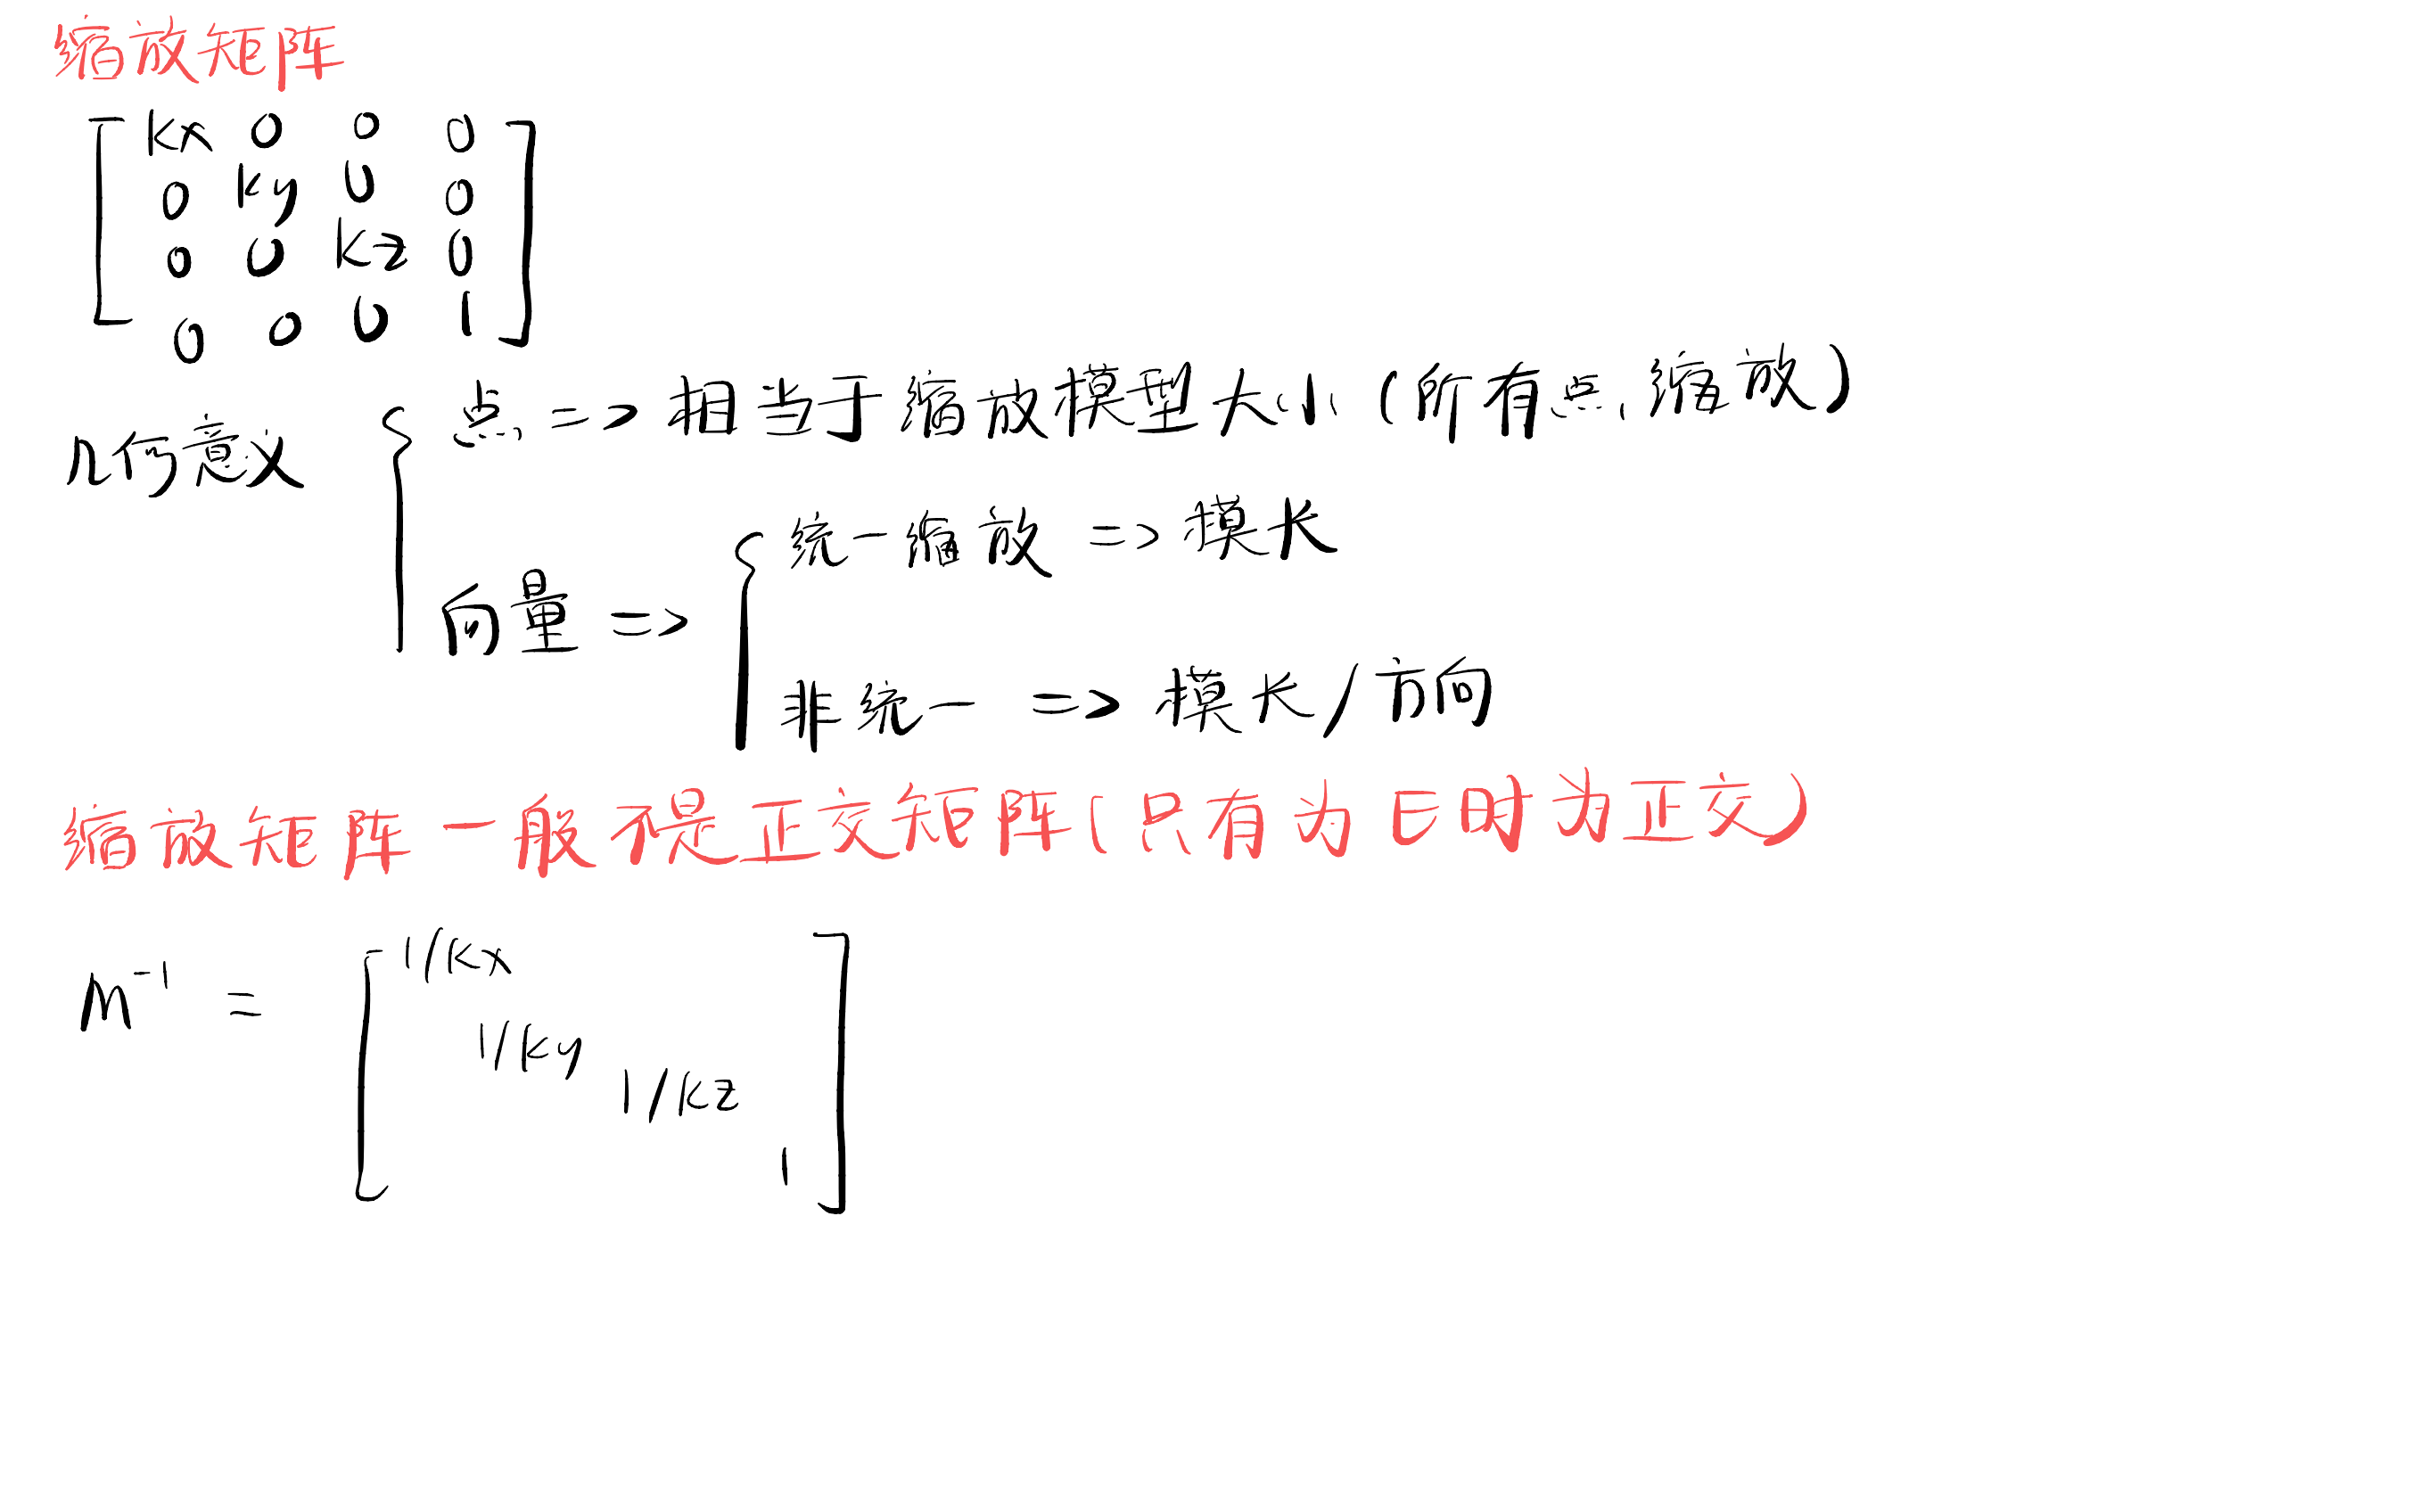 缩放矩阵
kx 0 0 0
0 ky 0 0
0 0 kz 0
0 0 0 1
几何意义
点 => 相当于缩放模型大小 (所有点缩放)
向量 =>
统一缩放 => 模长
非统一 => 模长/方向
缩放矩阵一般不是正交矩阵(只有为E时为正交)
M⁻¹ =
1/kx
1/ky
1/kz
1